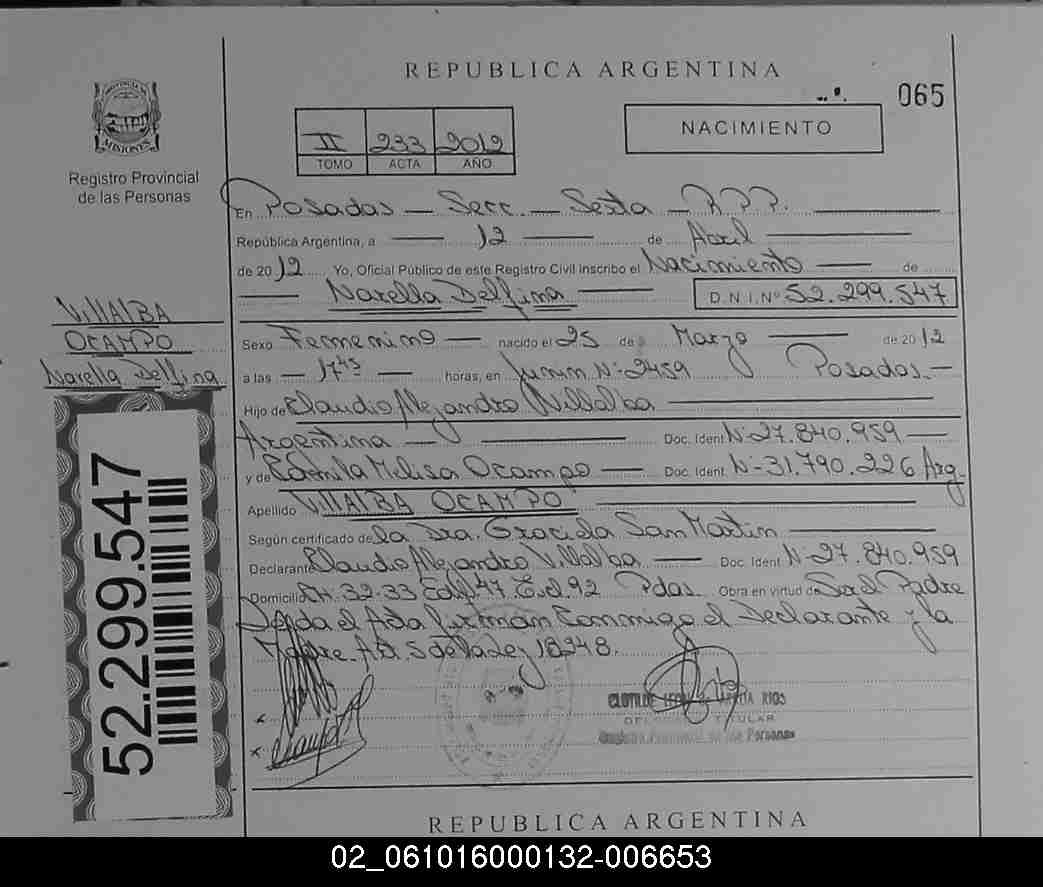 REPUBLICA ARGENTINA
065
PROVINCIA DE
MISIONES
Registro Provincial
de las Personas
II 233 2012
TOMO ACTA AÑO
NACIMIENTO
En Posadas — Secc. — Sexta — R.P.P.
República Argentina, a 12 de Abril
de 2012 Yo, Oficial Público de este Registro Civil inscribo el Nacimiento de
Narella Delfina D.N.I.Nº 52.299.547
VILLALBA
OCAMPO
Narella Delfina
Sexo Femenino nacido el 25 de Marzo de 2012
a las 17 45 horas, en Junin Nº 2459 Posadas.
Hijo de Claudio Alejandro Villalba
Argentina Doc. Ident Nº 27.840.959
y de Melisa Ocampo Doc. Ident Nº 31.790.226 Arg.
Apellido VILLALBA OCAMPO
Según certificado de la Dra. Graciela San Martin
Declarante Claudio Alejandro Villalba Doc. Ident Nº 27.840.959
Domicilio CH. 32-33 Edif 47 92 Pdas Obra en virtud de Ser el Padre
el Acta firman Conmigo el Declarante y la
Madre. Art. 5 de la Ley 18248.
52.299.547
TITULAR
Registro Provincial de las Personas
REPUBLICA ARGENTINA
02_061016000132-006653